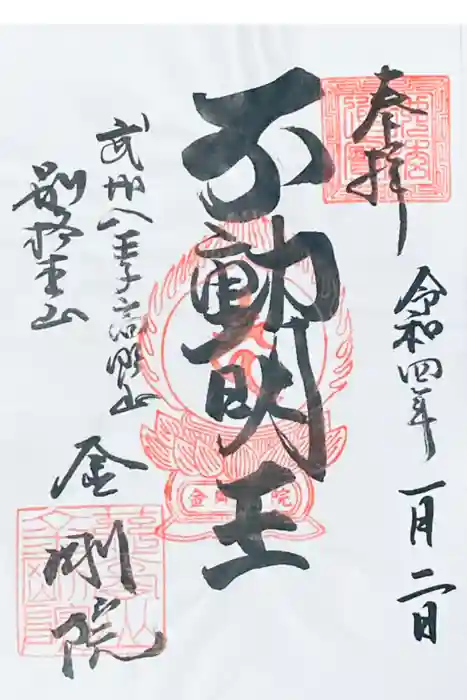 奉拝
令和四年 一月二日
不動明王
武州八王子高野山
別格本山
金剛院
金剛院